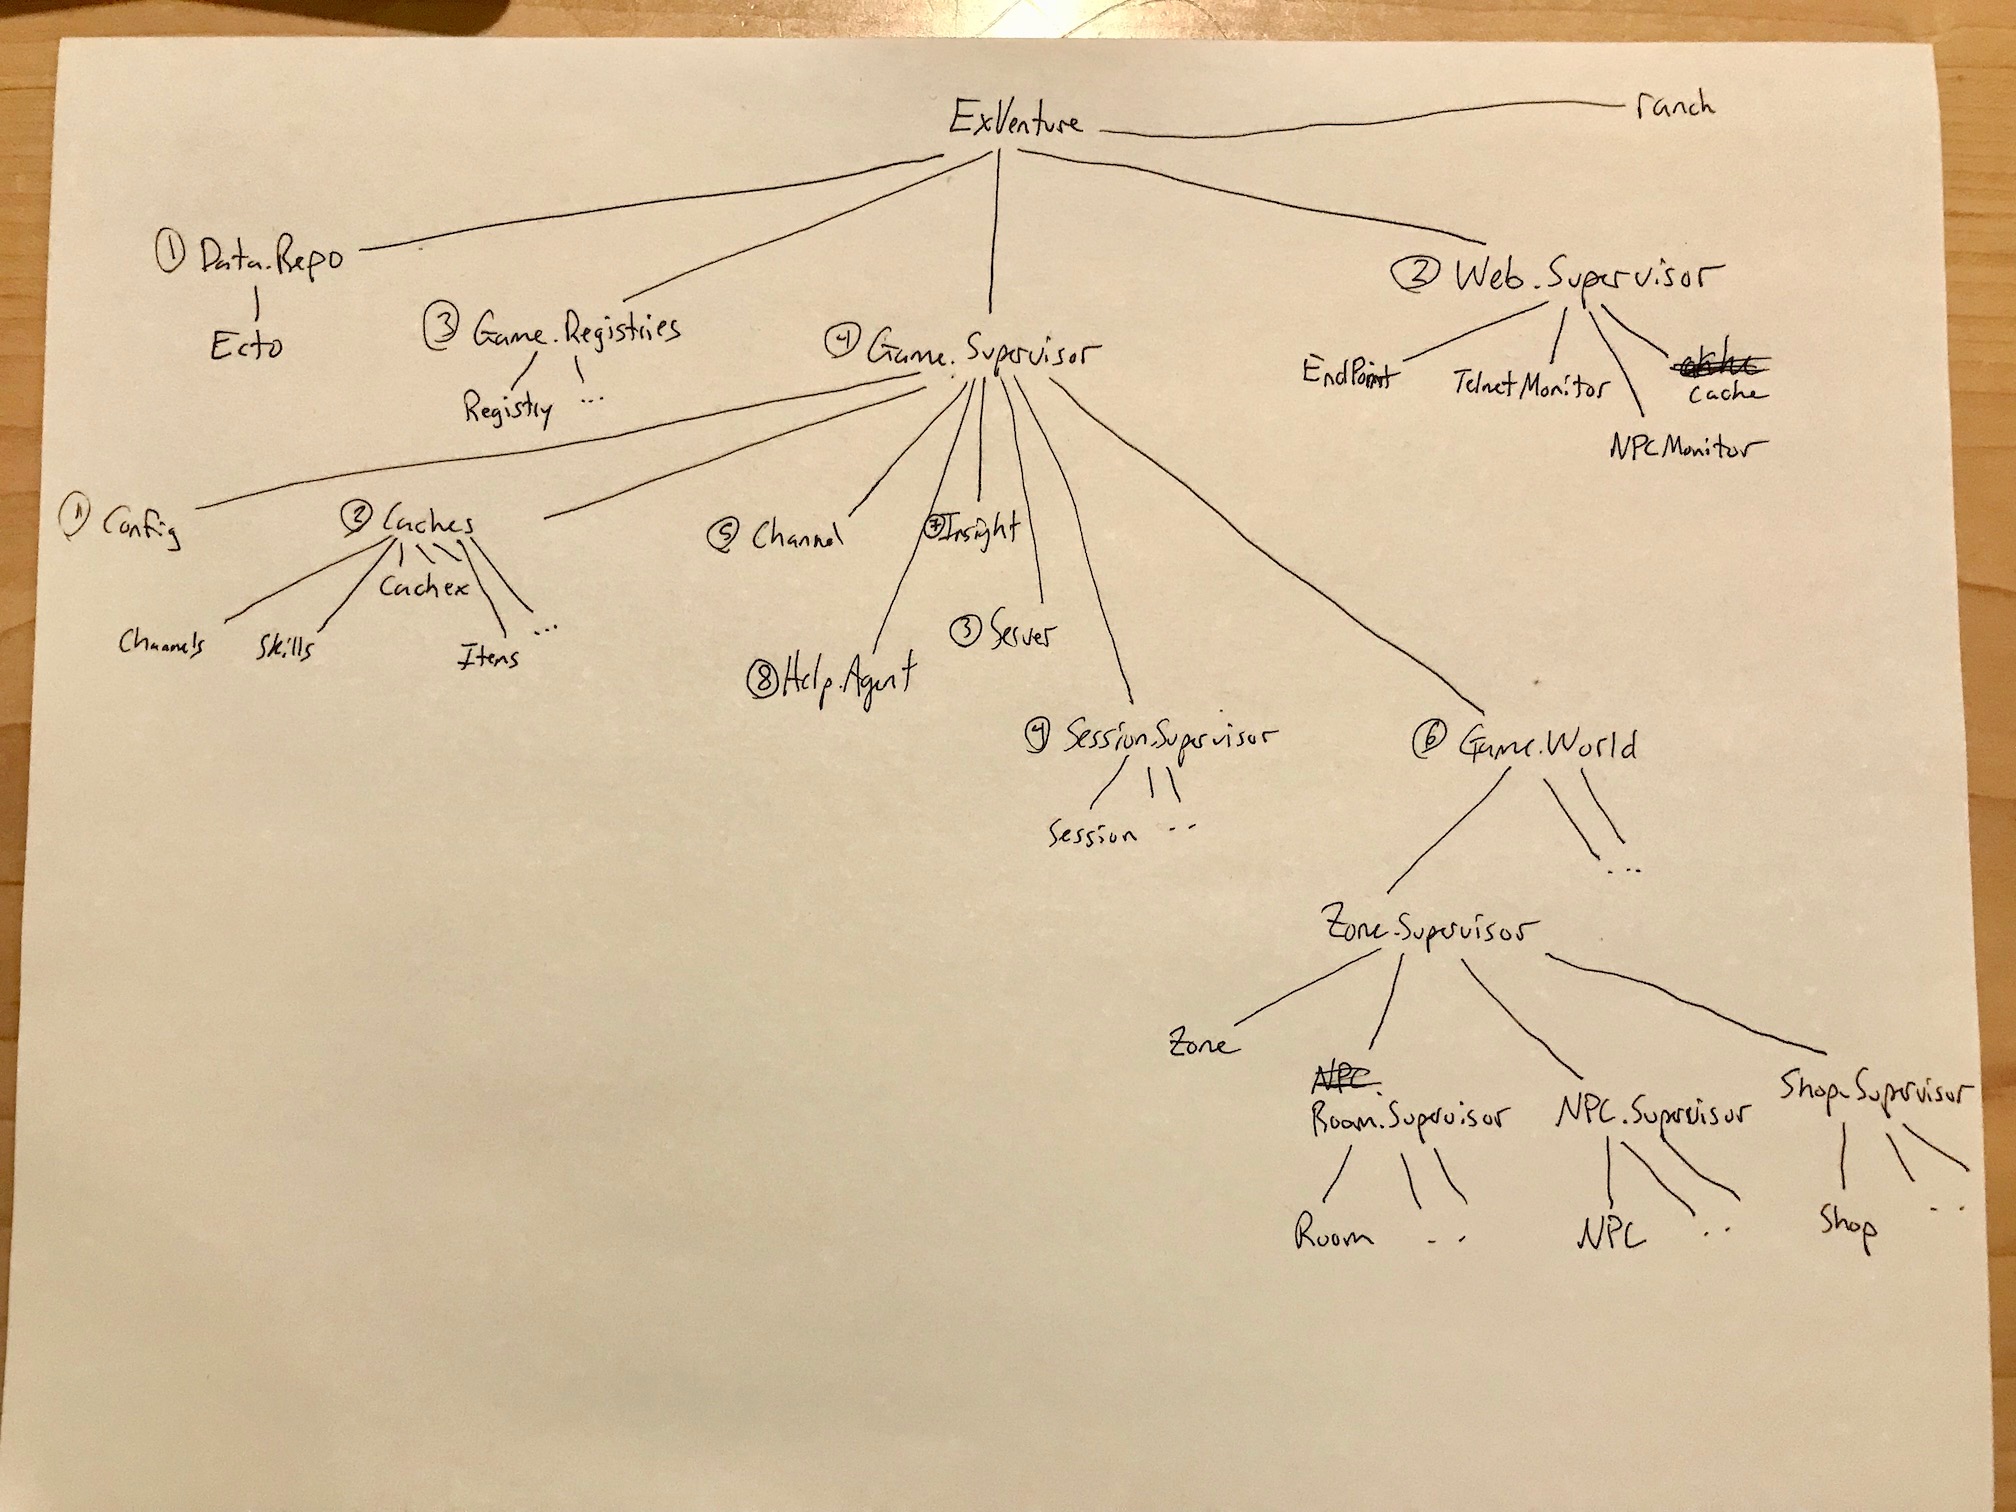 ExVenture
ranch
① Data.Repo
Ecto
③ Game.Registries
Registry ...
④ Game.Supervisor
② Web.Supervisor
EndPoint
TelnetMonitor
Cache
NPCMonitor
① Config
② Caches
Cachex
Channels
Skills
Items
...
⑤ Channel
⑦ Insight
③ Server
⑧ Help.Agent
④ Session.Supervisor
Session ..
⑥ Game.World
...
Zone.Supervisor
Zone
NPC.
Room.Supervisor
NPC.Supervisor
Shop.Supervisor
Room ..
NPC ..
Shop ..